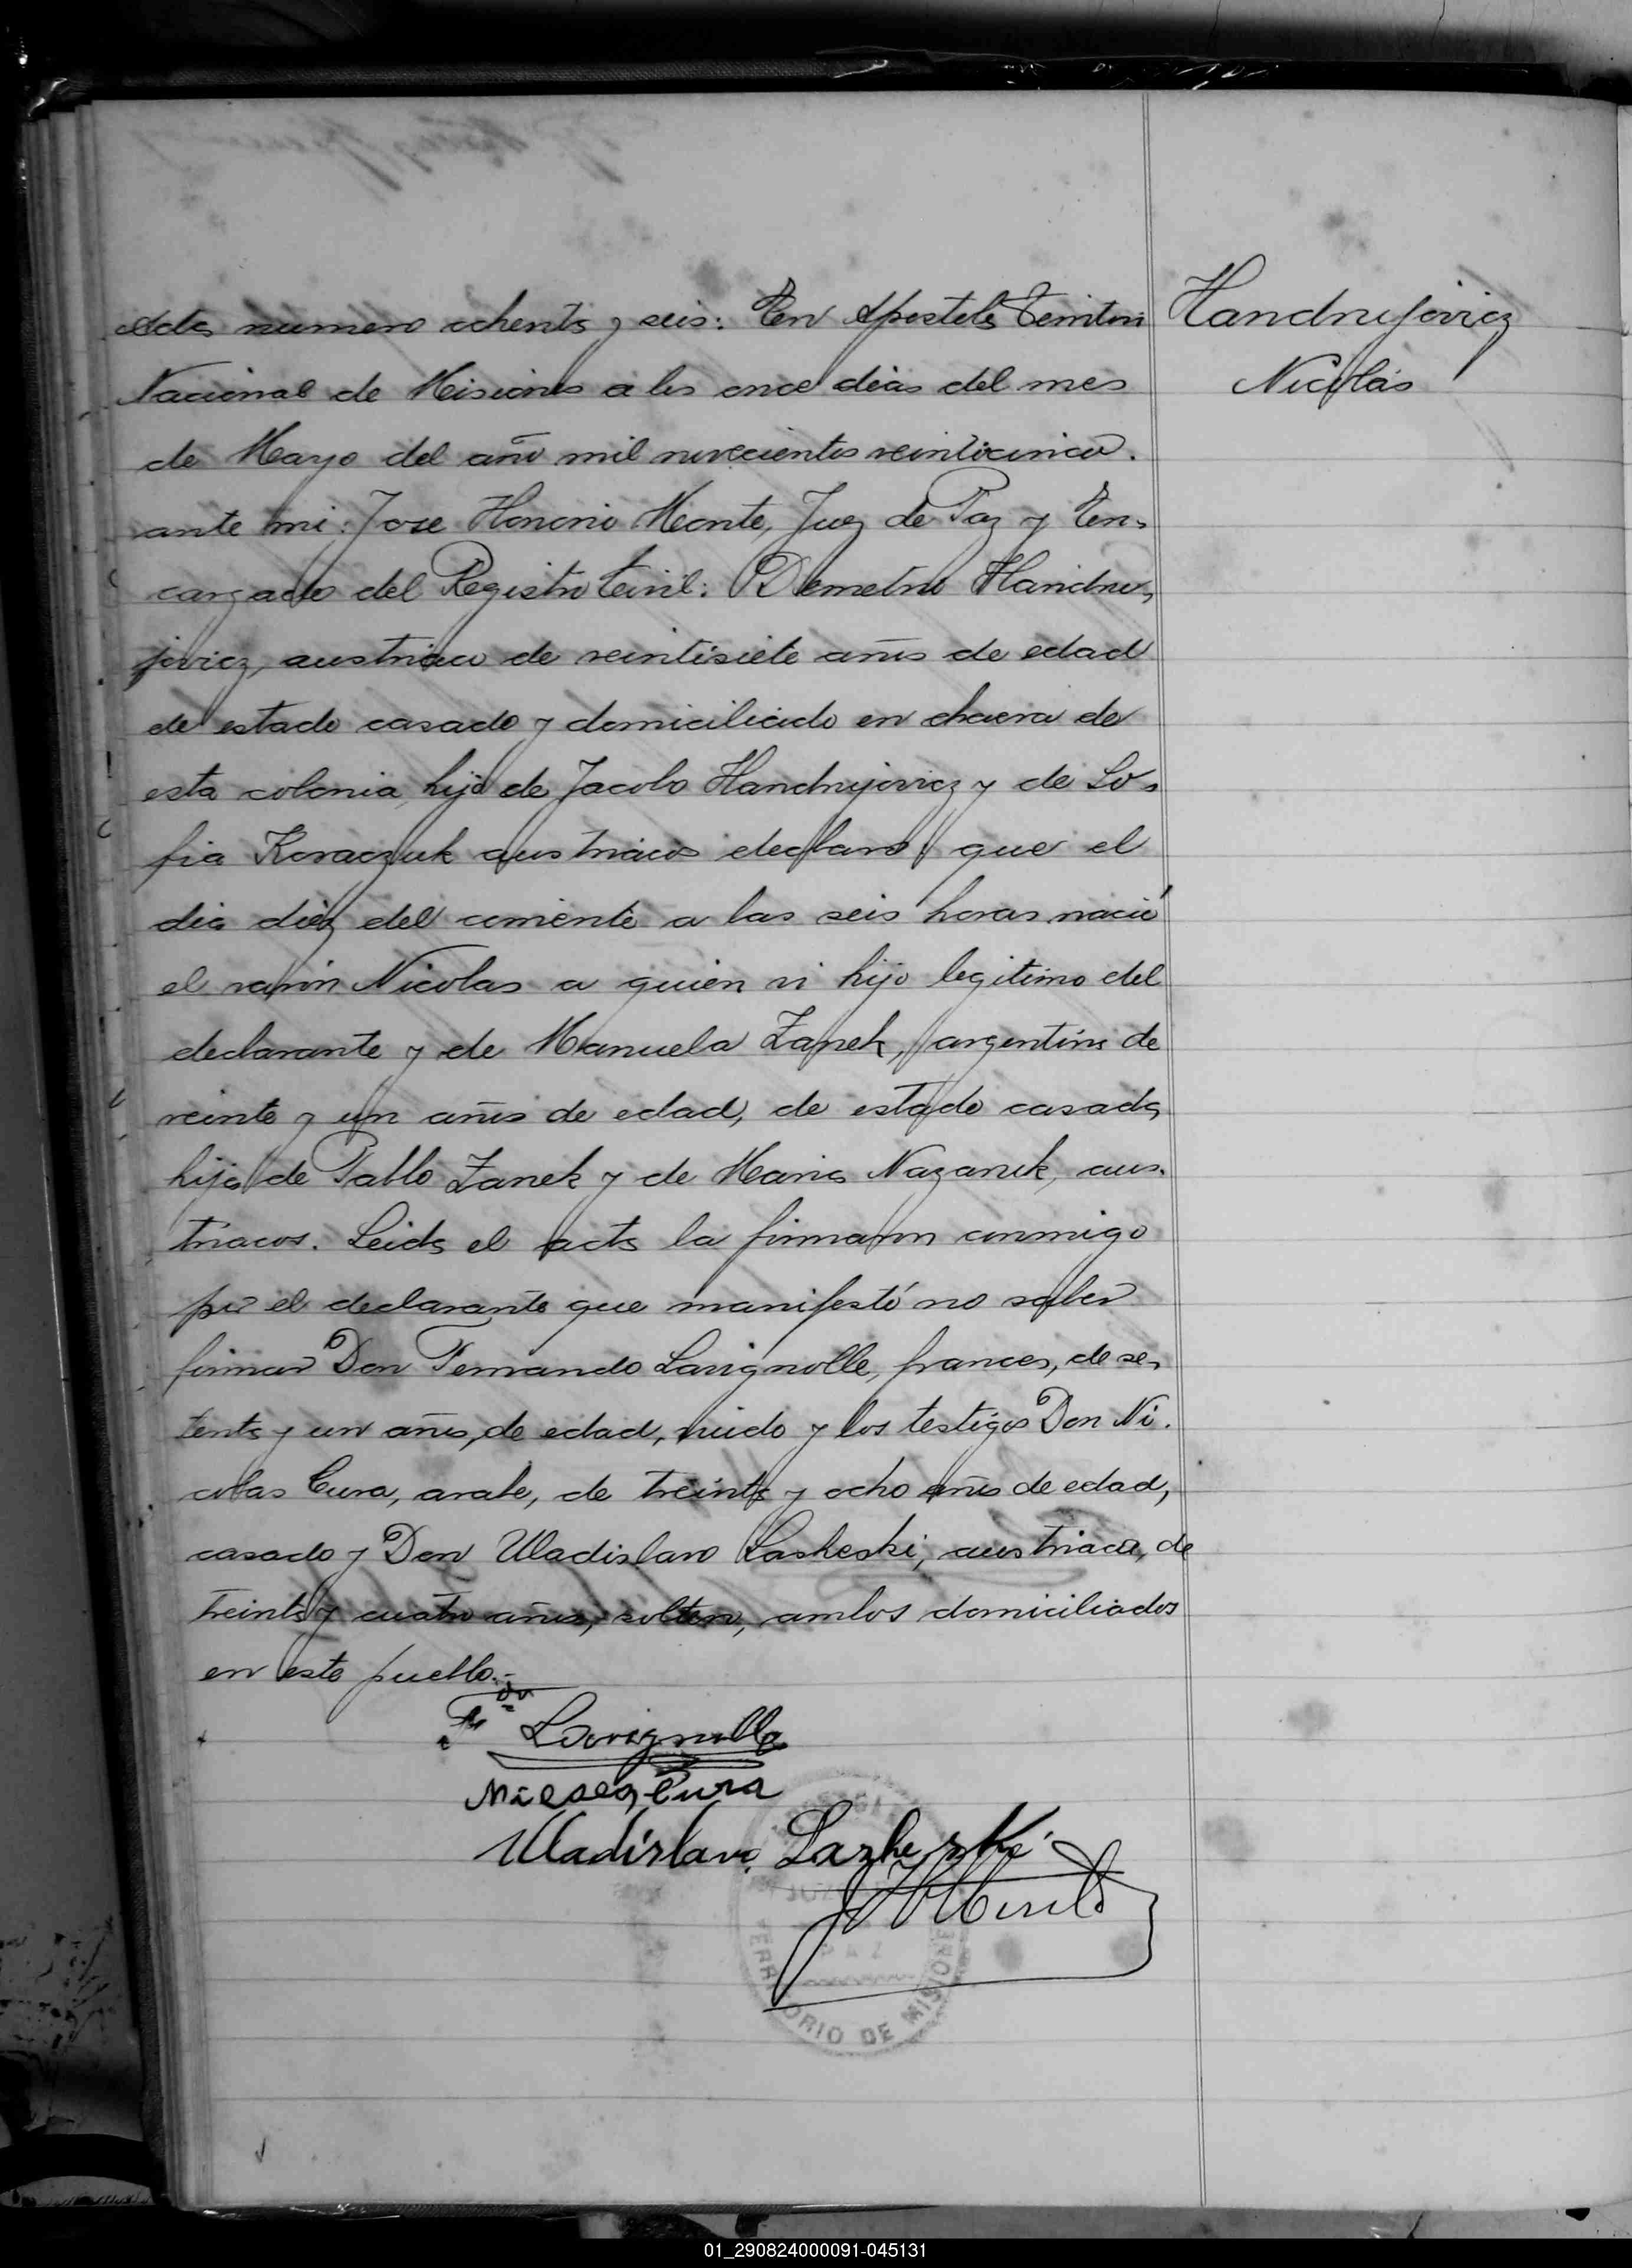 Handrujovicz
Nicolás
Acta numero ochenta y seis: En Apostoles Territorio
Nacional de Misiones a los once dias del mes
de Mayo del año mil novecientos veinticinco.
ante mi: Jose Honorio Monte, Juez de Paz y En-
cargado del Registro Civil: Demetrio Handru-
jovicz, austriaco de veintisiete años de edad
de estado casado y domiciliado en chacra de
esta colonia, hijo de Jacobo Handrujovicz y de So-
fia Koraczuk austriacos declaró que el
dia diez del corriente a las seis horas nació
el varón Nicolas a quien vi hijo legitimo del
declarante y de Manuela Zanek, argentina de
veinte y un años de edad, de estado casada,
hija de Pablo Zanek y de Maria Nazaruk, aus-
triacos. Leida el acta la firmaron conmigo
por el declarante que manifestó no saber
firmar Don Fernando Lavignolle, frances, de se-
tenta y un años, de edad, viudo y los testigos Don Ni-
colas Cura, arabe, de treinta y ocho años de edad,
casado y Don Uladislavo Laskeski, austriaco, de
treinta y cuatro años, soltero, ambos domiciliados
en este pueblo.-
Lavignolle
Nicolas Cura
Uladislavo Lazkeski
JHMonte
PAZ
TERRITORIO DE MISIONES
01_290824000091-045131